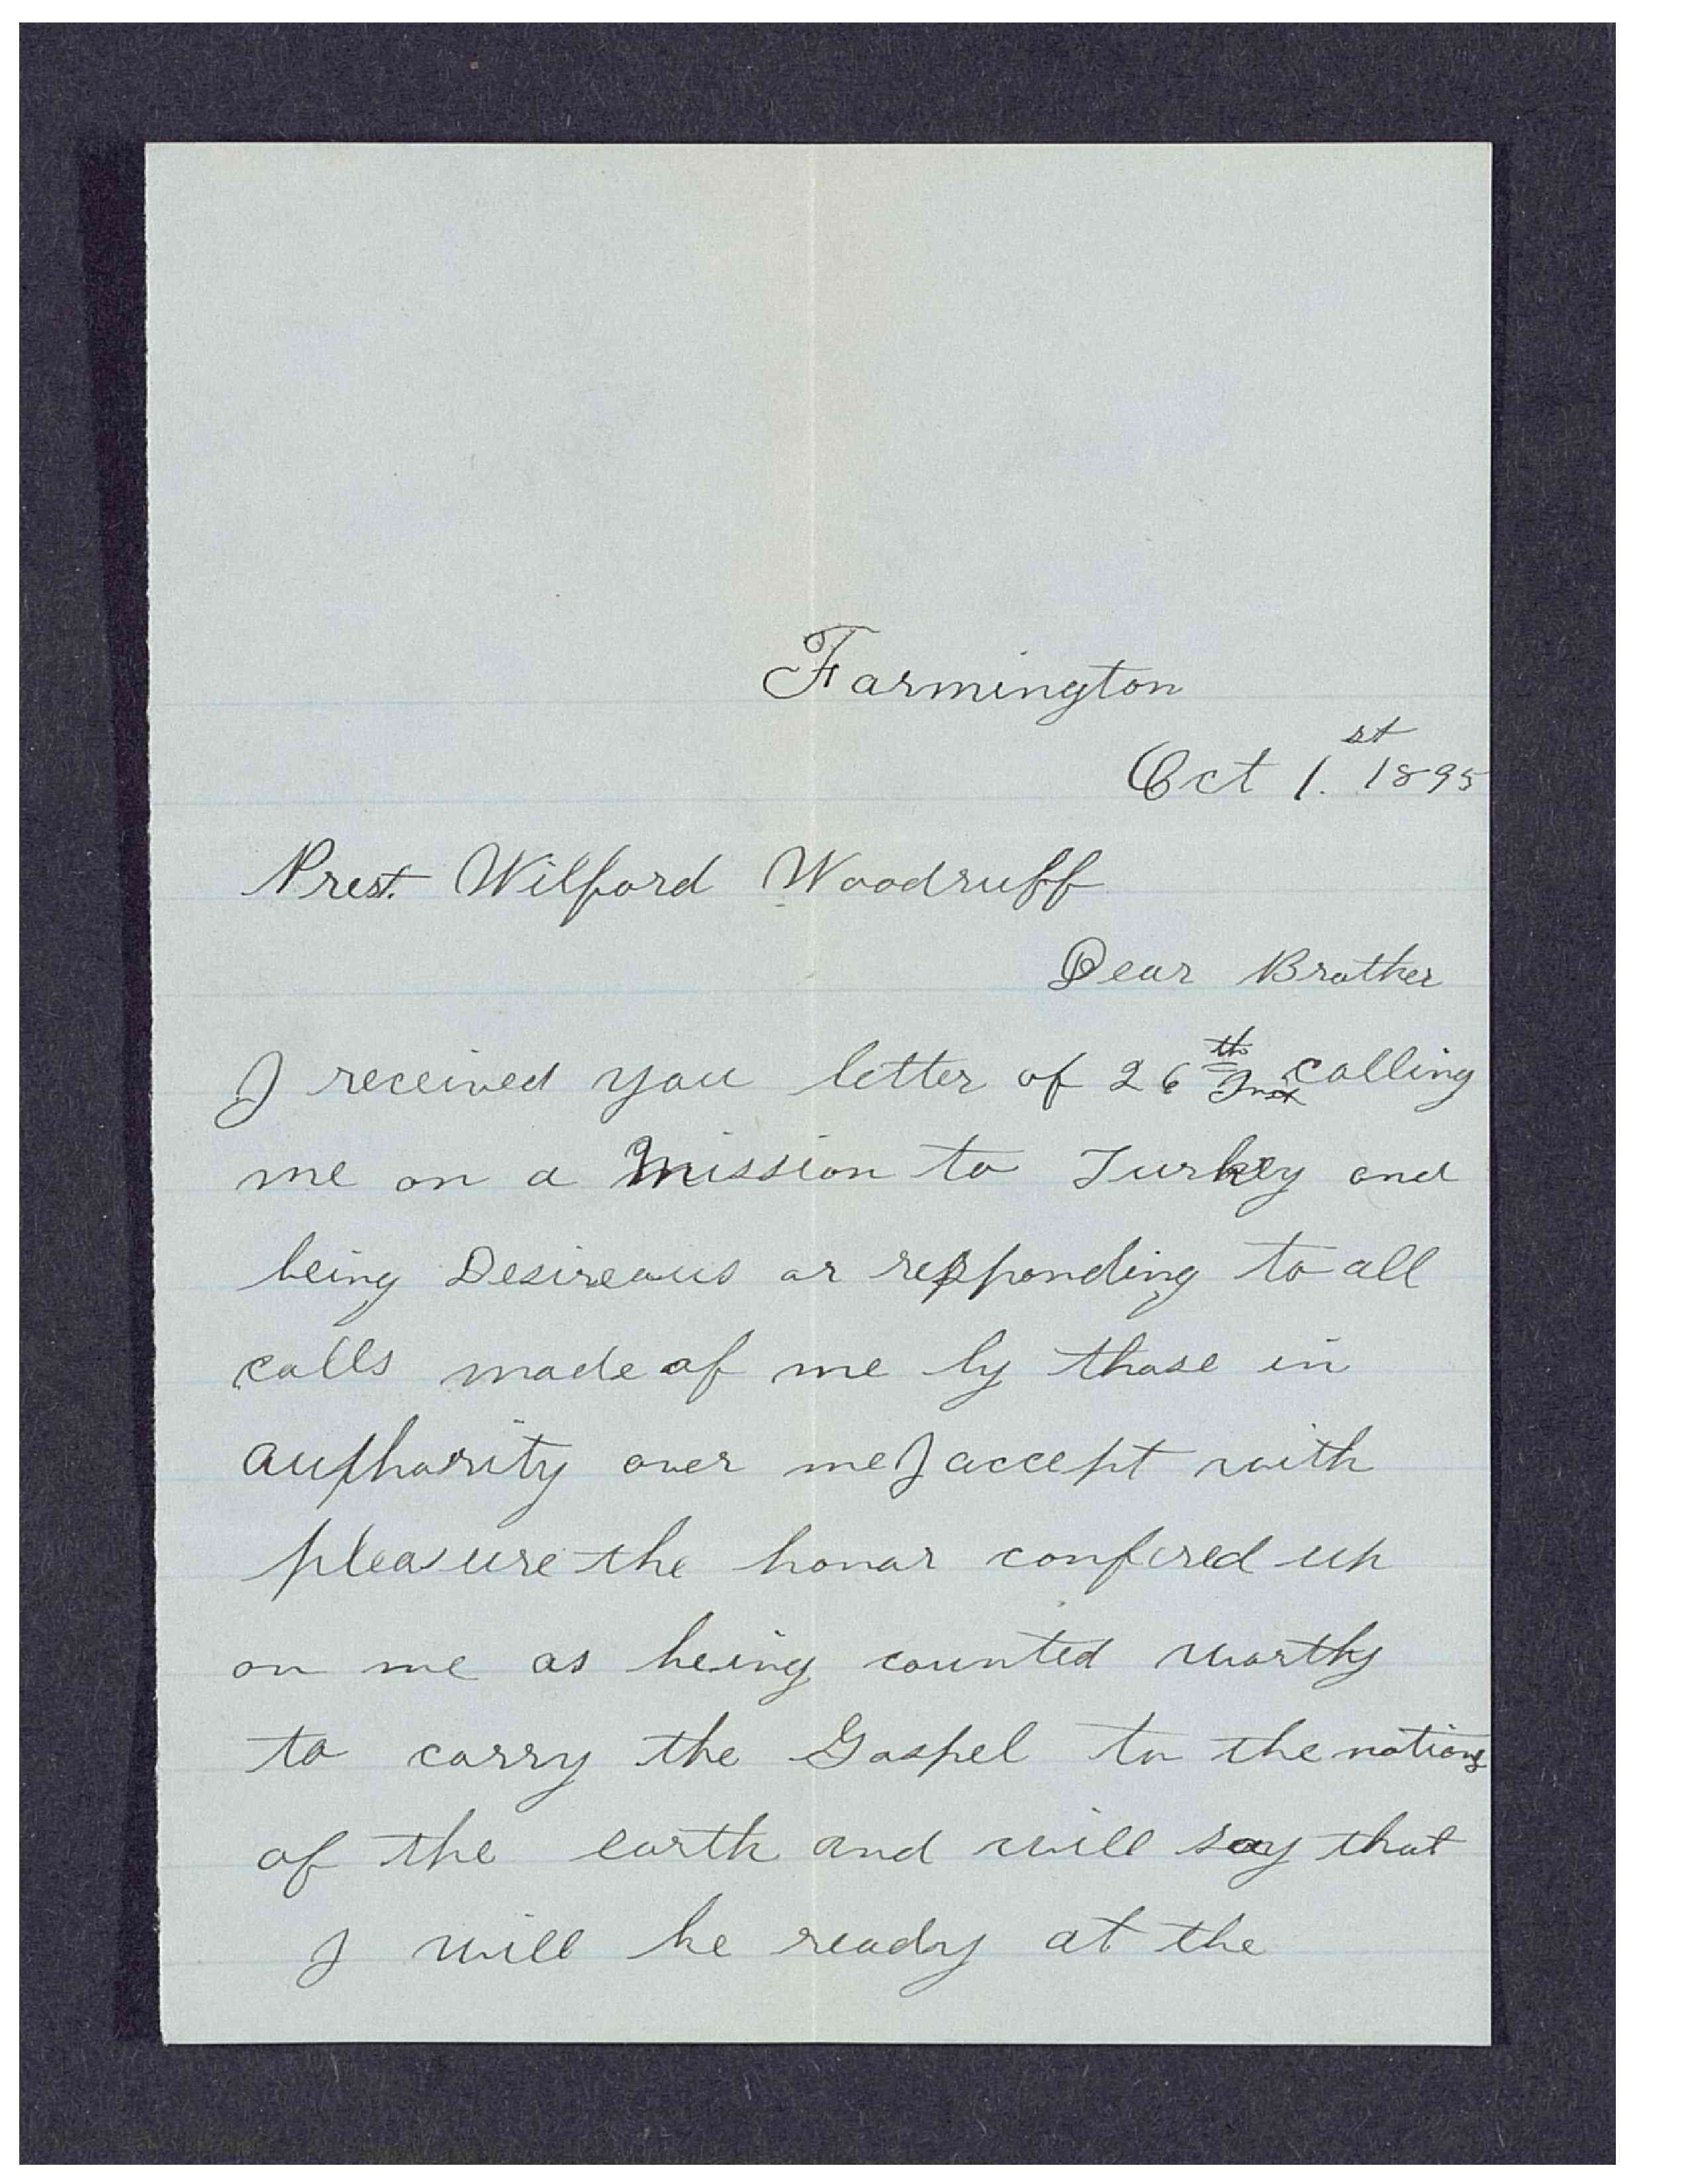 Farmington
Oct 1.st 1895
Prest. Wilford Woodruff
Dear Brother
I received you letter of 26th Inst calling
me on a Mission to Turkey and
being Desireous or responding to all
calls made of me by those in
authority over me I accept with
pleasure the honor confired up
on me as being counted worthy
to carry the Gospel to the nations
of the earth and will say that
I will be ready at the